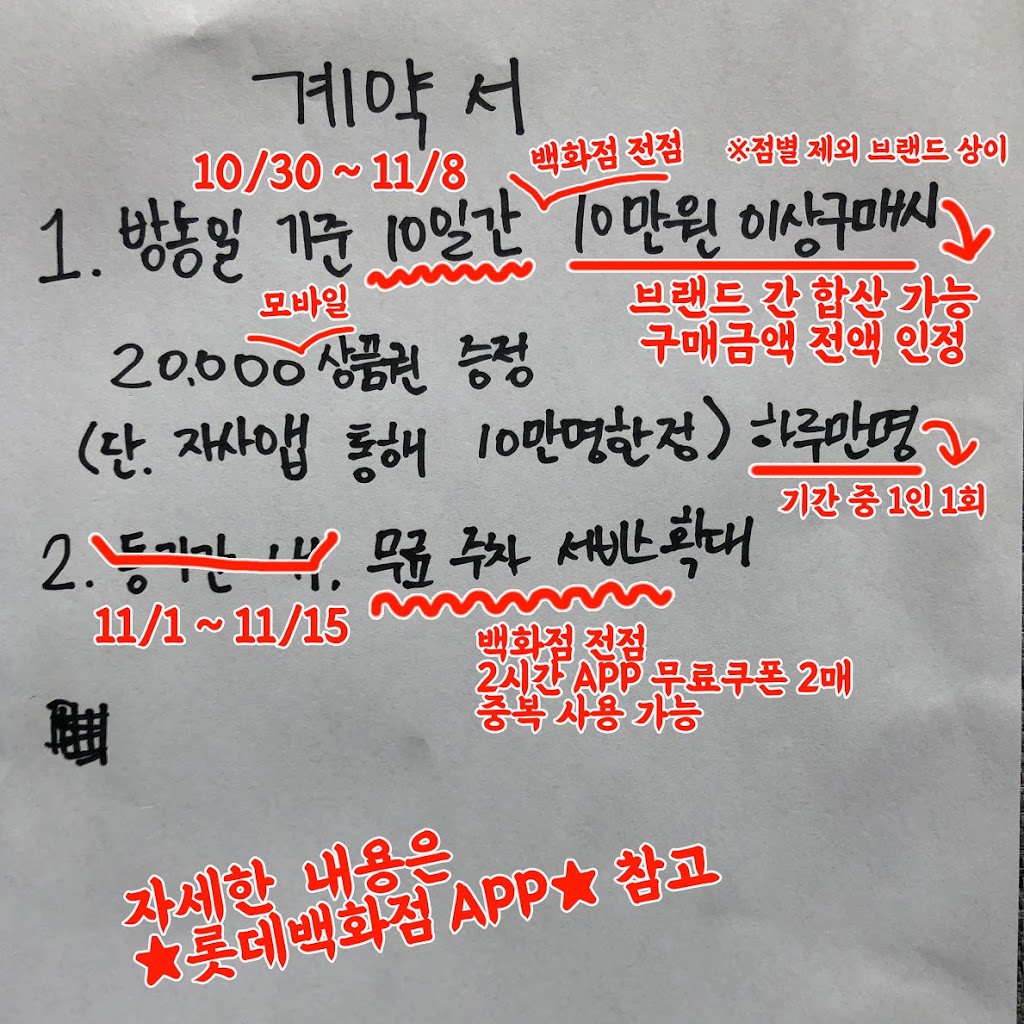 계약서
10/30 ~ 11/8 백화점 전점 ※점별 제외 브랜드 상이
1. 방송일 기준 10일간 10만원 이상구매시
브랜드 간 합산 가능
구매금액 전액 인정
모바일
20,000 상품권 증정
(단. 자사앱 통해 10만명한정) 하루만명
기간 중 1인 1회
2. 동기간 내, 무료 주차 서비스확대
11/1 ~ 11/15
백화점 전점
2시간 APP 무료쿠폰 2매
중복 사용 가능
자세한 내용은
★롯데백화점 APP★ 참고